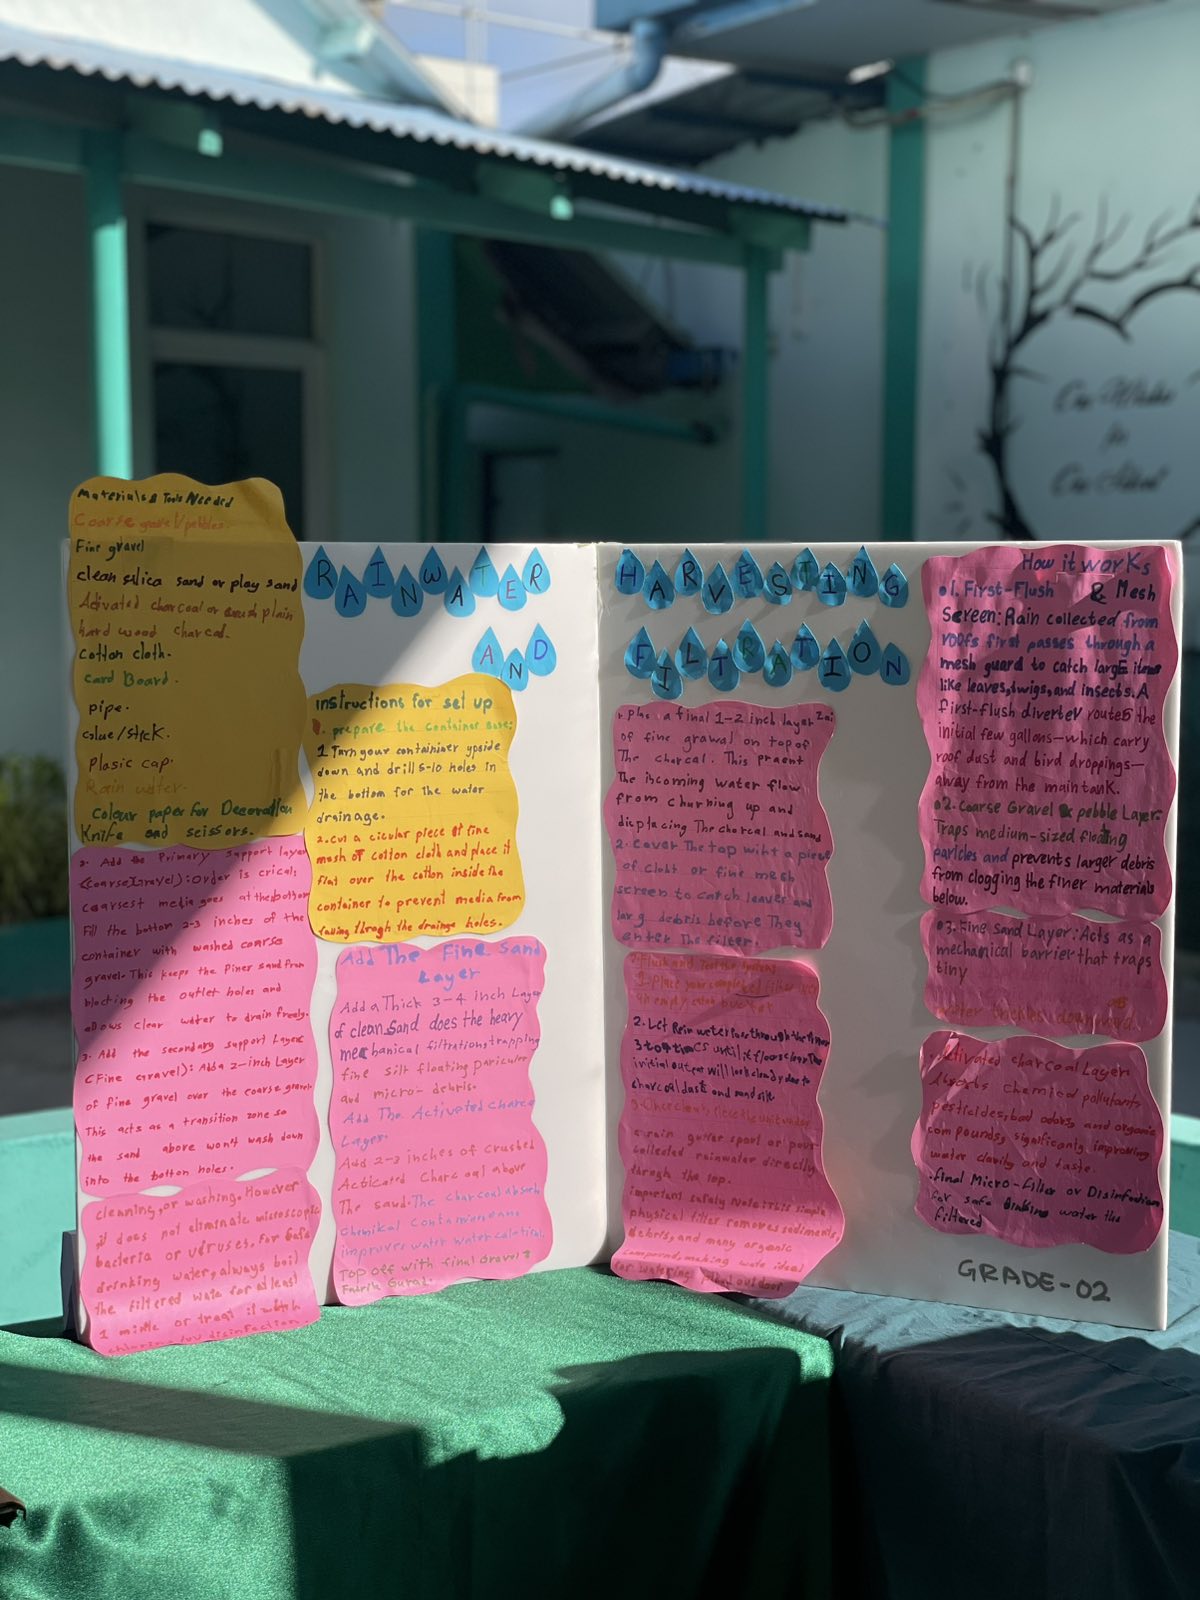 RAINWATER
AND
HARVESTING
FILTRATION
Materials & Tools Needed
Coarse gravel/pebbles.
Fine gravel
clean silica sand or play sand
Activated charcoal or crush plain
hard wood charcal.
Cotton cloth.
card Board.
pipe.
Glue/stick.
Plasic cap.
Rain water.
Colour paper for Decoration
Knife and scissors.
Add the Primary support layer
(coarse Gravel): Order is crical;
coarsest media goes at the bottom
Fill the bottom 2-3 inches of the
container with washed coarse
gravel. This keeps the Finer sand from
blocking the outlet holes and
allows clear water to drain freely.
3. Add the secondary support Layer
(Fine Gravel): Add a 2-inch Layer
of fine gravel over the coarse gravel
This acts as a transition zone so
the sand above won't wash down
into the bottom holes.
cleaning, or washing. However
it does not eliminate microscopic
bacteria or viruses. For Safe
drinking water, always boil
the filtered wate for at least
1 minute or treat it with
disinfection.
instructions for set up
prepare the container Base:
1 Turn your container upside
down and drill 5-10 holes in
the bottom for the water
drainage.
2. Cut a cicular piece of fine
mesh or cotton cloth and place it
flat over the cotton inside the
container to prevent media from
falling throgh the drainge holes.
Add The Fine Sand
Layer
Add a Thick 3-4 inch Layer
of clean sand does the heavy
mechanical filtrations trapping
fine silt floating paricular
and micro- debris.
Add The Activated Charcoal
Layer.
Add 2-3 inches of crushed
Acticated Charcoal above
The sand. The charcoal absorb
chemikal Contamineans
improves water water
Top off with final Gravel &
a final 1-2 inch layer
of fine grawal on top of
The charcoal. This praent
The iscoming water flow
from churning up and
dicplacing The charcal and sand
2. Cover The top wiht a piece
of cloht or fine mesh
screen to catch leaver and
larg debris before They
enter The filter.
Flush and Test the System
1. place your completed filter over
an empty catch bucket
2. Let Rain water pass through the filter
3 to 4 times until it flows clear. The
initial output will look cloudy due to
charcoal dust and sand silt.
3. Once clear,
a rain gutter spout or pour
collected rainwater directly
throgh the top.
important safety Note: this simple
physical filter removes sediments,
debris, and many organic
compound, making wate ideal
for watering outdoor
How it works
1. First-Flush & Mesh
Screen: Rain collected from
roofs first passes through a
mesh guard to catch large items
like leaves, twigs, and insects. A
first-flush diverter routes the
initial few gallons—which carry
roof dust and bird droppings—
away from the main tank.
2. Coarse Gravel & pebble Layer:
Traps medium-sized floating
paricles and prevents larger debris
from clogging the finer materials
below.
3. Fine Sand Layer: Acts as a
mechanical barrier that traps
tiny
water trickles downward.
Activated charcoal Layer
chemical pollutants
pesticides, bad odors, and organic
compounds, significanly improving
water clarity and taste.
Final Micro-Filter or Disinfection
For safe drinking water the
filtered
GRADE-02